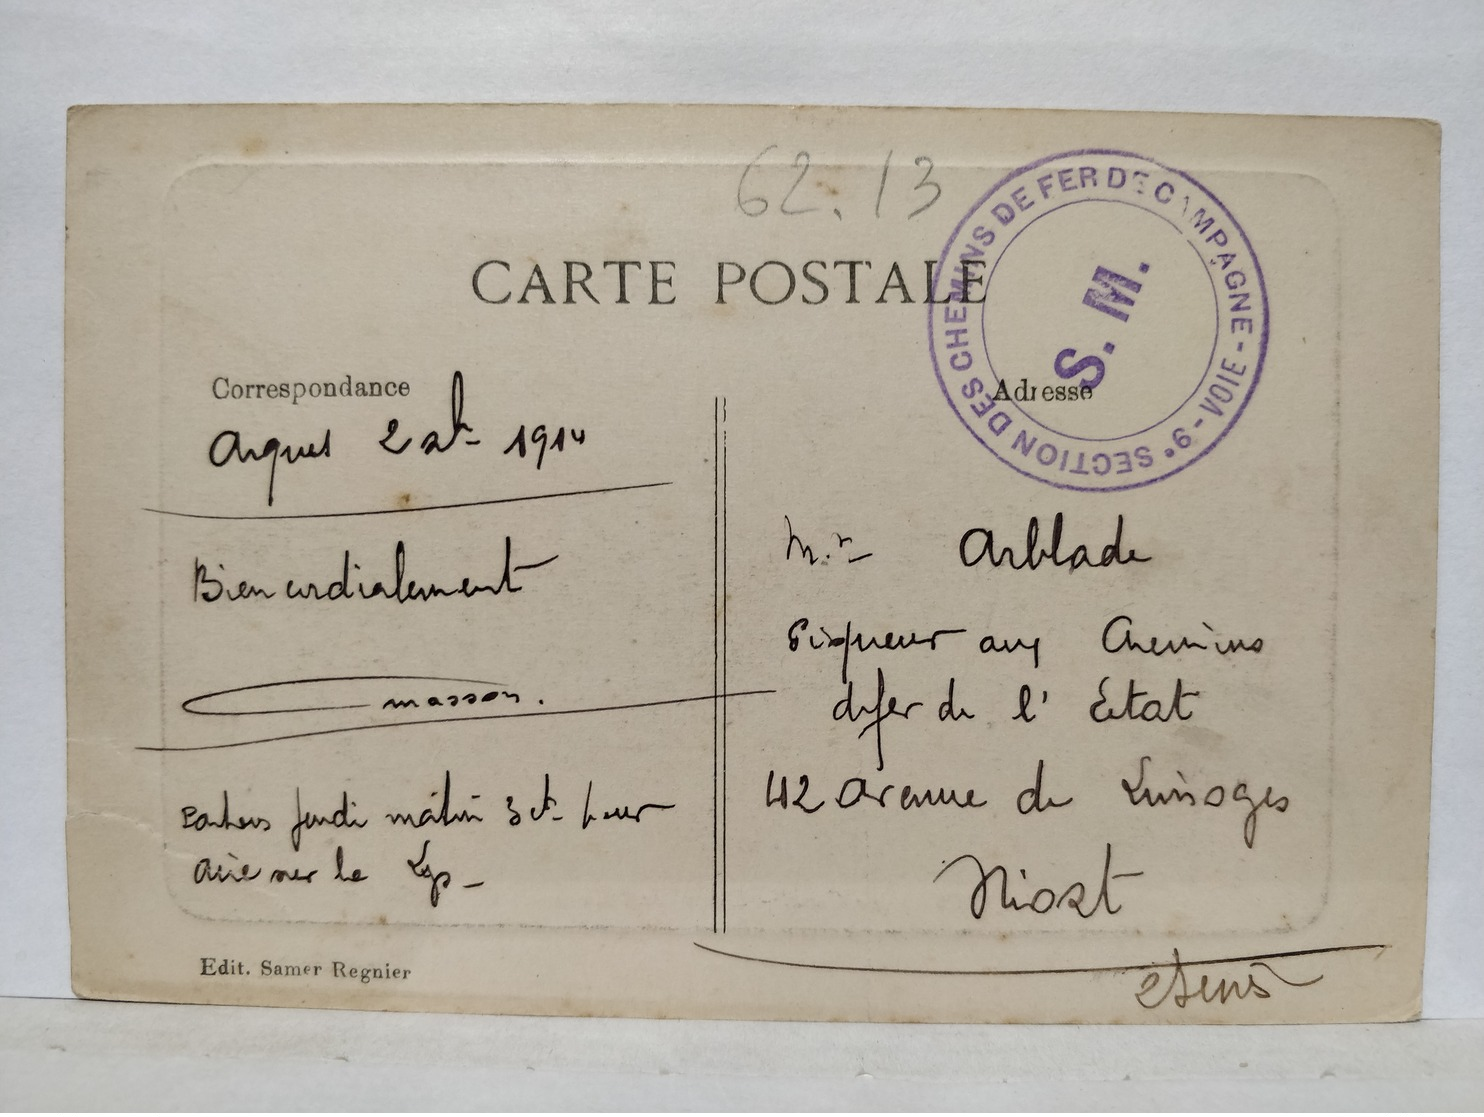 62.13
CARTE POSTALE
9e SECTION DES CHEMINS DE FER DE CAMPAGNE - VOIE -
S. M.
Correspondance
Arques 2 1914
Bien cordialement
Masson.
jeudi matin 3 pour
Aire sur la Lys
Adresse
Mr Arblade
Piqueur aux Chemins
de fer de l'Etat
42 avenue de Limoges
Niort
2 Sevres
Edit. Samer Regnier